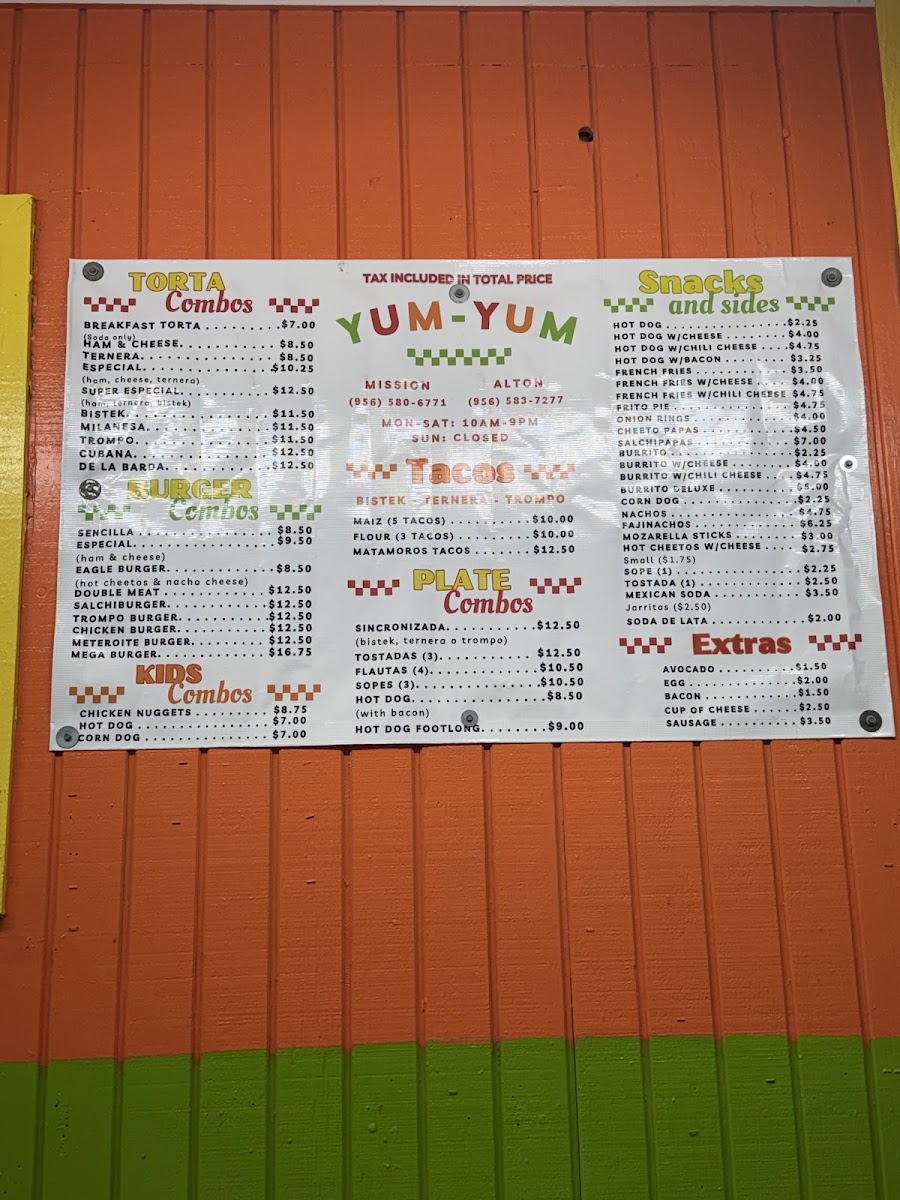 TORTA
Combos
BREAKFAST TORTA . . . . . . . . . .$7.00
(Soda only)
HAM & CHEESE. . . . . . . . . . . . . $8.50
TERNERA. . . . . . . . . . . . . . . . . . $8.50
ESPECIAL. . . . . . . . . . . . . . . . . .$10.25
(ham, cheese, ternera)
SUPER ESPECIAL. . . . . . . . . . . . $12.50
(ham, ternera, bistek)
BISTEK. . . . . . . . . . . . . . . . . . . $11.50
MILANESA. . . . . . . . . . . . . . . . .$11.50
TROMPO. . . . . . . . . . . . . . . . . .$11.50
CUBANA. . . . . . . . . . . . . . . . . .$12.50
DE LA BARDA. . . . . . . . . . . . . .$12.50
BURGER
Combos
SENCILLA . . . . . . . . . . . . . . . . . $8.50
ESPECIAL. . . . . . . . . . . . . . . . . .$9.50
(ham & cheese)
EAGLE BURGER. . . . . . . . . . . . . $8.50
(hot cheetos & nacho cheese)
DOUBLE MEAT . . . . . . . . . . . . . $12.50
SALCHIBURGER. . . . . . . . . . . . .$12.50
TROMPO BURGER. . . . . . . . . . . $12.50
CHICKEN BURGER. . . . . . . . . . . $12.50
METEROITE BURGER. . . . . . . . . $12.50
MEGA BURGER. . . . . . . . . . . . . $16.75
KIDS
Combos
CHICKEN NUGGETS . . . . . . . . . $8.75
HOT DOG . . . . . . . . . . . . . . . . $7.00
CORN DOG . . . . . . . . . . . . . . . $7.00
TAX INCLUDED IN TOTAL PRICE
YUM-YUM
MISSION ALTON
(956) 580-6771 (956) 583-7277
MON-SAT: 10AM-9PM
SUN: CLOSED
Tacos
BISTEK - TERNERA - TROMPO
MAIZ (5 TACOS) . . . . . . . . . . $10.00
FLOUR (3 TACOS) . . . . . . . . . .$10.00
MATAMOROS TACOS . . . . . . . $12.50
PLATE
Combos
SINCRONIZADA. . . . . . . . . . .$12.50
(bistek, ternera o trompo)
TOSTADAS (3). . . . . . . . . . . . $12.50
FLAUTAS (4). . . . . . . . . . . . . .$10.50
SOPES (3). . . . . . . . . . . . . . . .$10.50
HOT DOG. . . . . . . . . . . . . . . . $8.50
(with bacon)
HOT DOG FOOTLONG. . . . . . . .$9.00
Snacks
and sides
HOT DOG . . . . . . . . . . . . . . . .$2.25
HOT DOG W/CHEESE . . . . . . . . $4.00
HOT DOG W/CHILI CHEESE . . . .$4.75
HOT DOG W/BACON . . . . . . . . . $3.25
FRENCH FRIES . . . . . . . . . . . . . $3.50
FRENCH FRIES W/CHEESE . . . . . $4.00
FRENCH FRIES W/CHILI CHEESE $4.75
FRITO PIE . . . . . . . . . . . . . . . . $4.75
ONION RINGS . . . . . . . . . . . . . $4.00
CHEETO PAPAS . . . . . . . . . . . . .$4.50
SALCHIPAPAS . . . . . . . . . . . . . $7.00
BURRITO . . . . . . . . . . . . . . . . . $2.25
BURRITO W/CHEESE . . . . . . . . . $4.00
BURRITO W/CHILI CHEESE . . . . $4.75
BURRITO DELUXE . . . . . . . . . . . $5.00
CORN DOG . . . . . . . . . . . . . . . .$2.25
NACHOS . . . . . . . . . . . . . . . . . $4.75
FAJINACHOS . . . . . . . . . . . . . . $6.25
MOZARELLA STICKS . . . . . . . . . $3.00
HOT CHEETOS W/CHEESE . . . . . $2.75
Small ($1.75)
SOPE (1) . . . . . . . . . . . . . . . . . $2.25
TOSTADA (1) . . . . . . . . . . . . . . $2.50
MEXICAN SODA . . . . . . . . . . . . $3.50
Jarritos ($2.50)
SODA DE LATA . . . . . . . . . . . . . $2.00
Extras
AVOCADO . . . . . . . . . . . .$1.50
EGG . . . . . . . . . . . . . . . . $2.00
BACON . . . . . . . . . . . . . .$1.50
CUP OF CHEESE . . . . . . . $2.50
SAUSAGE . . . . . . . . . . . . $3.50